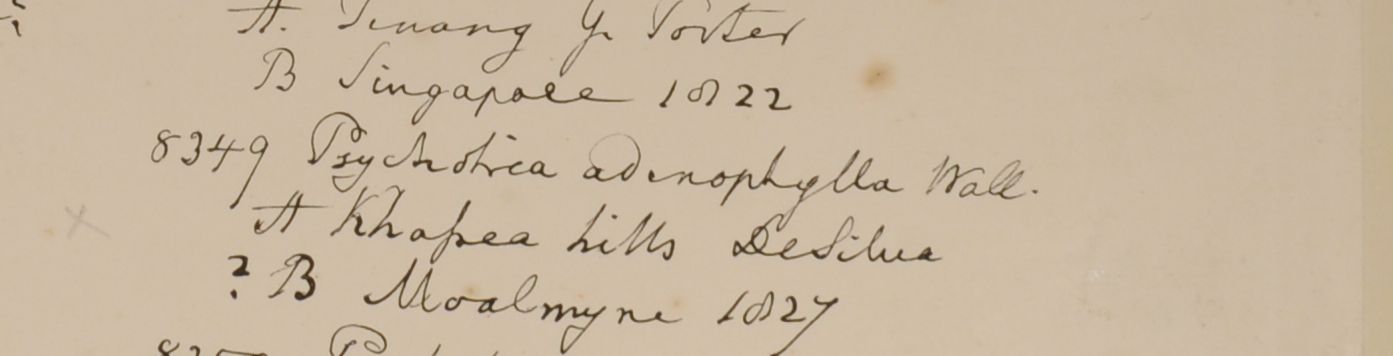 A. Penang G. Porter
B Singapore 1822
8349 Psychotrea adenophylla Wall.
A Khassea hills DeSilva
? B Moalmyne 1827